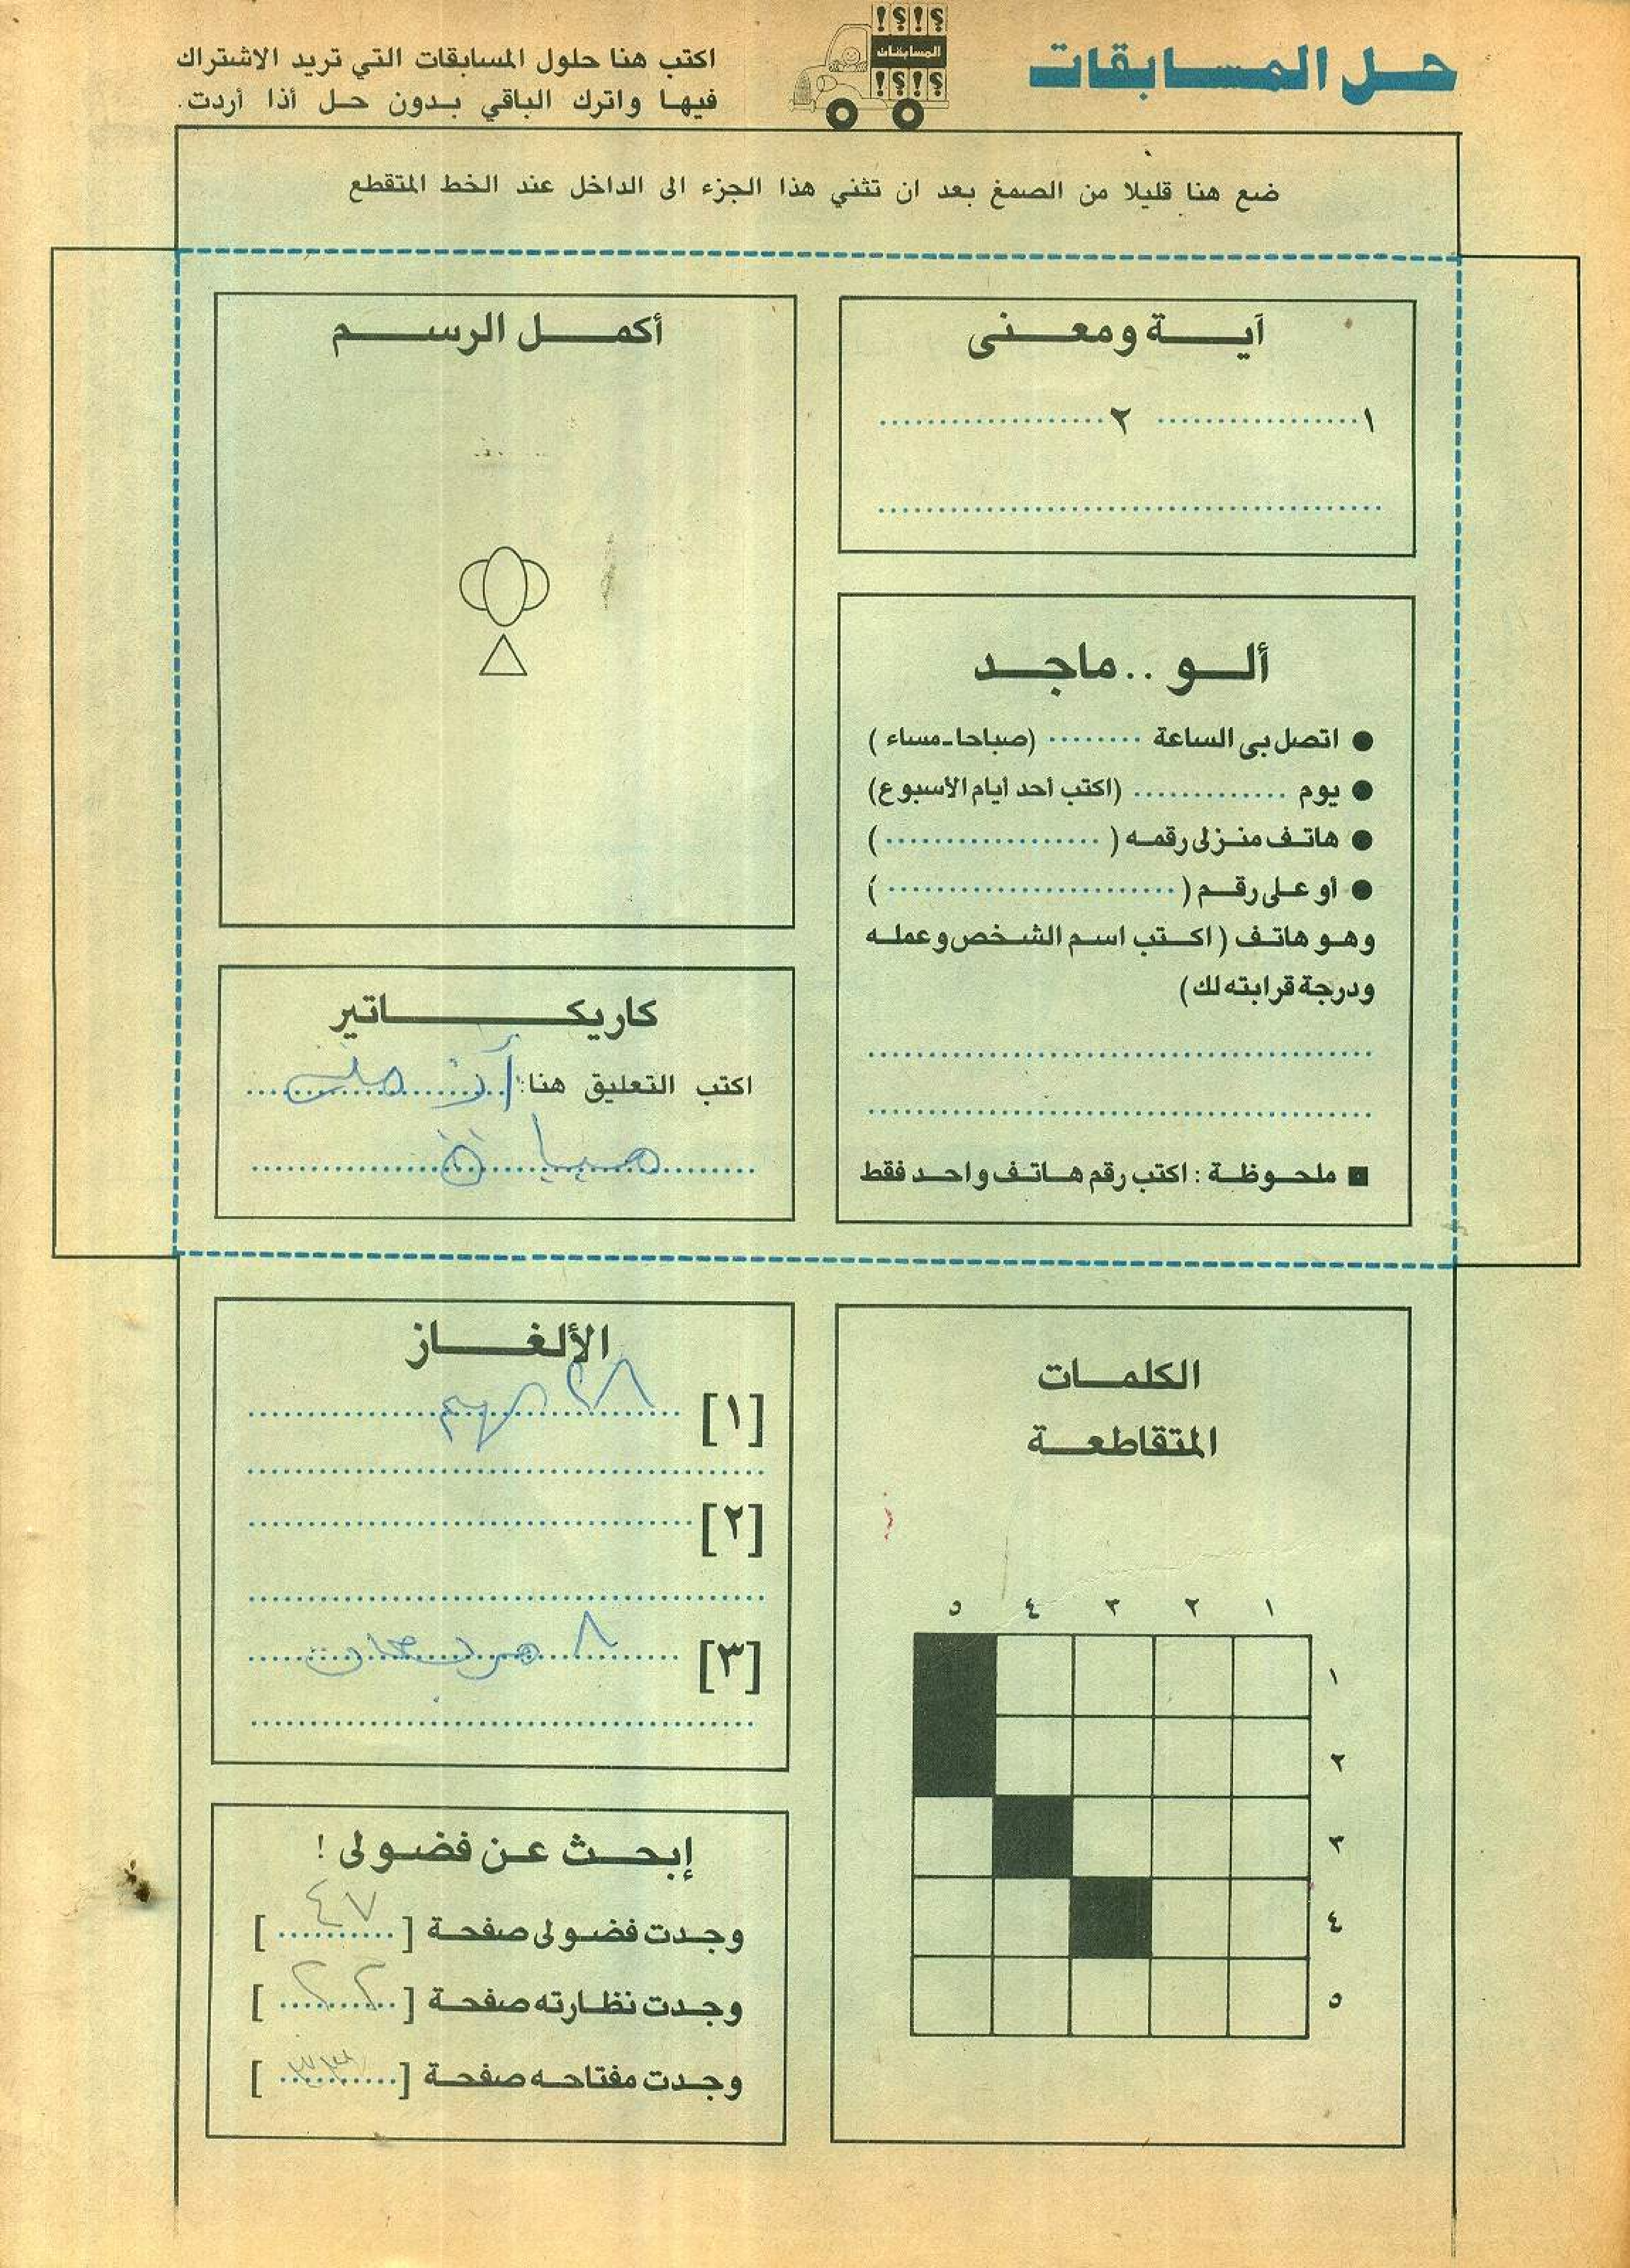 حل المسابقات
؟!؟!
المسابقات
؟!؟!
اكتب هنا حلول المسابقات التي تريد الاشتراك
فيها واترك الباقي بدون حل أذا أردت.
ضع هنا قليلا من الصمغ بعد ان تثني هذا الجزء الى الداخل عند الخط المتقطع
آية ومعنى
١.................. ٢..................
ألو .. ماجد
● اتصل بى الساعة ........ (صباحا - مساء)
● يوم ............. (اكتب أحد أيام الأسبوع)
● هاتف منزلى رقمه (...................)
● أو على رقم (.........................)
وهو هاتف (اكتب اسم الشخص وعمله
ودرجة قرابته لك)
■ ملحوظة : اكتب رقم هاتف واحد فقط
أكمل الرسم
كاريكاتير
اكتب التعليق هنا:
الكلمات
المتقاطعة
١ ٢ ٣ ٤ ٥
١
٢
٣
٤
٥
الألغاز
[١]
[٢]
[٣] ٨
إبحث عن فضولى !
وجدت فضولى صفحة [٤٧]
وجدت نظارته صفحة [٢٢]
وجدت مفتاحه صفحة [٣٣]